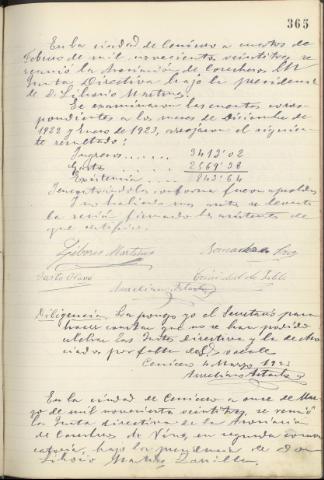 365
En la ciudad de Cenicero a cuatro de
Febrero de mil novecientos veintitres, se
reunió la Asociación de Cosecheros
Junta Directiva bajo la presidencia
de D. Liborio Martinez
Se examinaron las cuentas corres
pondientes a los meses de Diciembre de
1922 y Enero de 1923, arrojaron el siguien
te resultado:
Ingresos...... 3412'02
Gastos...... 2569'38
Existencia.... 842'64
Encontrándolas conforme fueron aprobadas
I no habiendo mas se levanta
la sesión firmando los asistentes de
que certifico.
Liborio Martinez
Justo Olave Trinidad
Aureliano Artacho
Diligencia, La pongo yo el Secretario para
hacer constar que no se han podido
celebrar las Juntas directiva y la de Aso
ciados por falta de
Cenicero 4 Marzo 1923
Aureliano Artacho
En la ciudad de Cenicero a once de Mar
zo de mil novecientos veintitres, se reunió
la Junta directiva de la Asociación
de Cosecheros de Vino, en segunda convo
catoria, bajo la presidencia de Don
Liborio